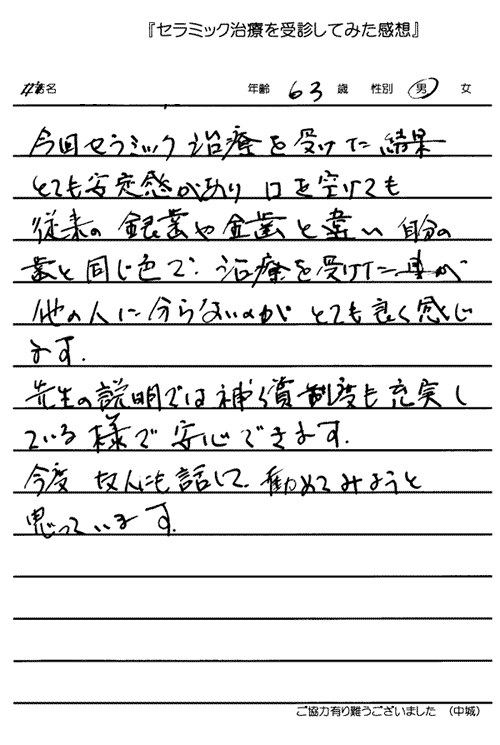 『セラミック治療を受診してみた感想』
名 年齢 63 歳 性別 男 女
今回セラミック治療を受けた結果
とても安定感があり 口を空けても
従来の銀歯や金歯と違い 自分の
歯と同じ色で、治療を受けた事が
他の人に分らないのが とても良く感じ
ます.
先生の説明では補償制度も充実し
ている様で安心できます.
今度 友人にも話して、勧めてみようと
思っています.
ご協力有り難うございました (中城)